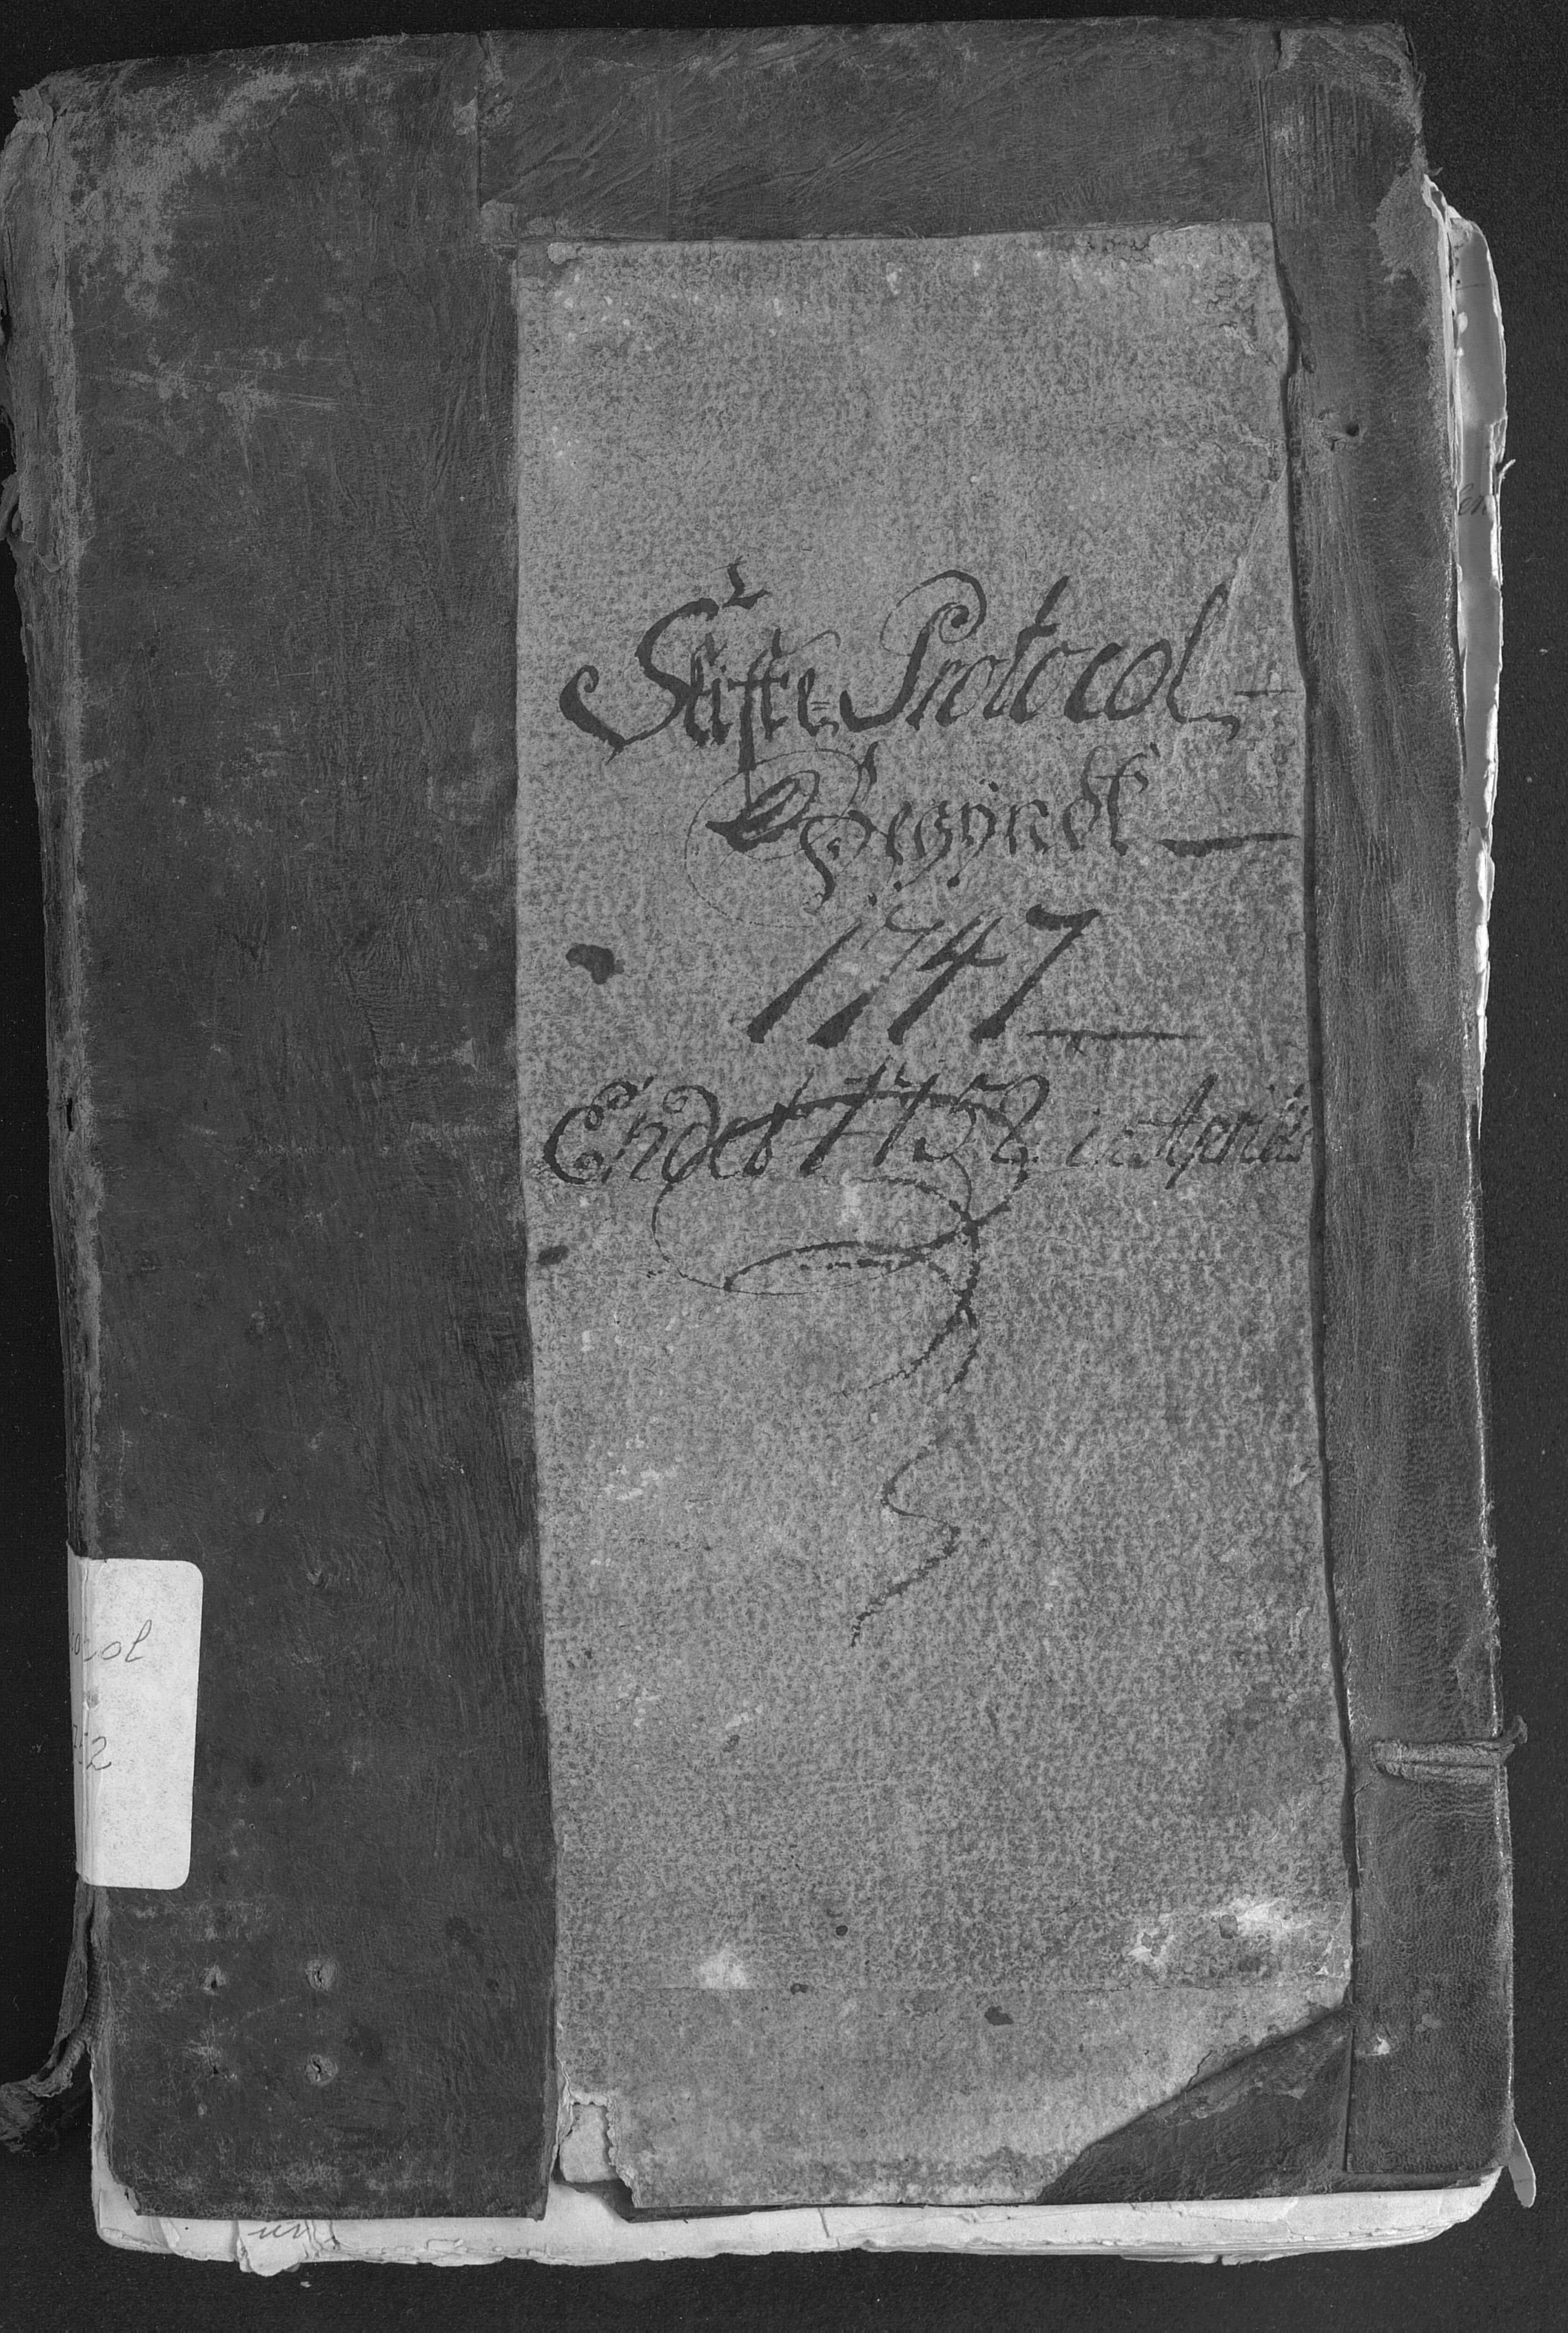 Skifte Protocol
Begÿndt
1747
Endet 1752 in Aprili
ocol
752